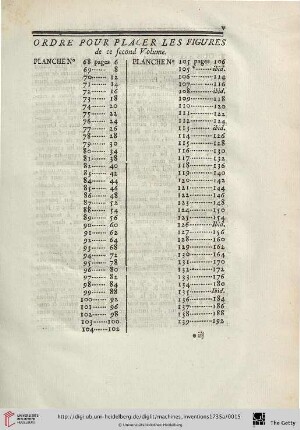 v
ORDRE POUR PLACER LES FIGURES
de ce second Volume.
PLANCHE Nº 68 pages 6
69 ...... 8
70 ...... 12
71 ...... 14
72 ...... 16
73 ...... 18
74 ...... 20
75 ...... 22
76 ...... 24
77 ...... 26
78 ...... 28
79 ...... 30
80 ...... 34
81 ...... 38
82 ...... 40
83 ...... 42
84 ...... 44
85 ...... 46
86 ...... 48
87 ...... 52
88 ...... 54
89 ...... 56
90 ...... 60
91 ...... 62
92 ...... 64
93 ...... 68
94 ...... 72
95 ...... 78
96 ...... 80
97 ...... 82
98 ...... 84
99 ...... 88
100 ...... 92
101 ...... 96
102 ...... 98
103 ...... 100
104 ...... 102
PLANCHE Nº 105 pages 106
ibid.
106 ...... 114
107 ...... 116
108 ...... ibid.
109 ...... 118
110 ...... 120
111 ...... 122
112 ...... ibid.
113 ...... 124
114 ...... 126
115 ...... 128
116 ...... 130
117 ...... 132
118 ...... 136
119 ...... 138
120 ...... 140
121 ...... 144
122 ...... 146
123 ...... 148
124 ...... 150
125 ...... 154
126 ...... Ibid.
127 ...... 156
128 ...... 160
129 ...... 162
130 ...... 164
131 ...... 170
132 ...... 174
133 ...... 176
134 ...... 180
135 ...... Ibid.
136 ...... 184
137 ...... 186
138 ...... 188
139 ...... 192
* iij
http://digi.ub.uni-heidelberg.de/diglit/machines_inventions1735a/0015
© Universitätsbibliothek Heidelberg
UNIVERSITÄTS-
BIBLIOTHEK
HEIDELBERG
The Getty